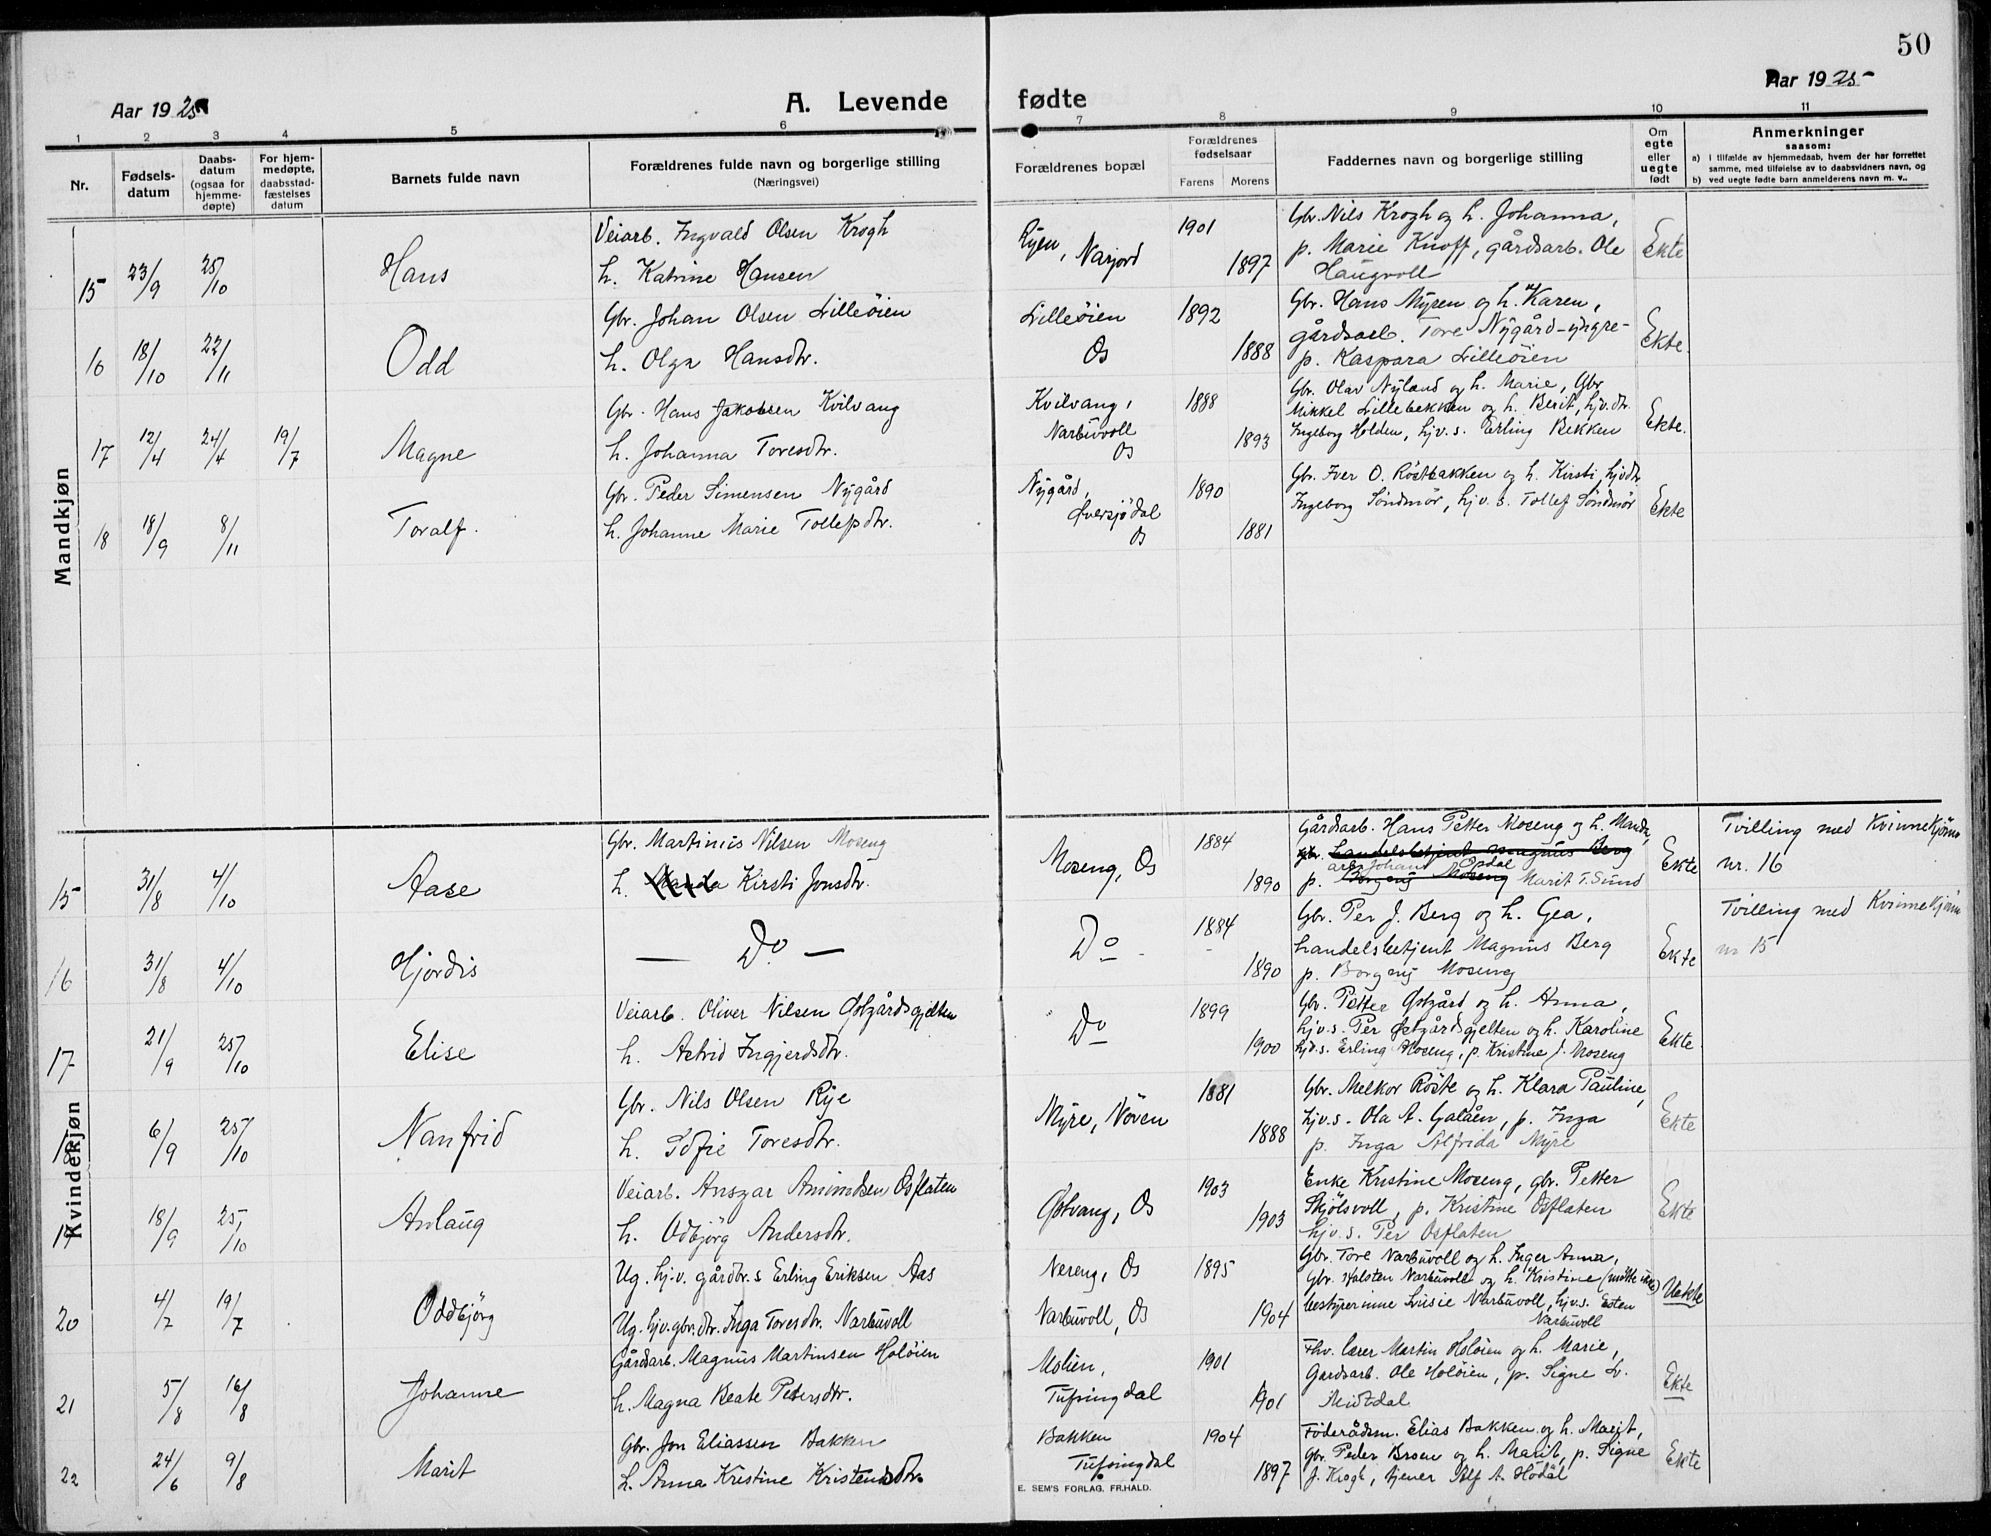 50
Aar 1925
A. Levende fødte
Aar 1925
1 2 3 4 5 6 7 8 9 10 11
Nr.
Fødsels-
datum
Daabs-
datum
(ogsaa for
hjemme-
døpte)
For hjem-
medøpte,
daabsstad-
fæstelses
datum
Barnets fulde navn
Forældrenes fulde navn og borgerlige stilling
(Næringsvei)
Forældrenes bopæl
Forældrenes
fødselsaar
Farens Morens
Faddernes navn og borgerlige stilling
Om
egte
eller
uegte
født
Anmerkninger
saasom:
a) i tilfælde av hjemmedaab, hvem der har forrettet
samme, med tilføielse av to daabsvidners navn, og
b) ved uegte fødte barn anmelderens navn m. v..
Mandkjøn
15 23/9 25/10 Hans
Veiarb. Ingvald Olsen Krogh
h. Katrine Hansen
Ryen, Narjord
1901
1897
Gbr. Nils Krogh og h. Johanna,
p. Marie Knoff, gårdsarb. Ole
Haugvoll
Ekte
16 18/10 22/11 Odd
Gbr. Johan Olsen Lilleöien
h. Olga Hansdtr.
Lilleöien
Os
1892
1888
Gbr. Hans Myren og h. Karen,
gårdsarb. Tore Nygård-yngre-
p. Kaspara Lilleöien
Ekte.
17 12/4 24/4 19/7 Magne
Gbr. Hans Jakobsen Kvilvang
h. Johanna Toresdtr.
Kvilvang,
Narbuvoll
Os
1888
1893
Gbr. Olav Nyland og h. Marie, Gbr.
Mikkel Lillebekken og h. Berit, hjv.dtr.
Ingeborg Holden, hjv.s. Erling Bekken
Ekte.
18 18/9 8/11 Toralf.
Gbr. Peder Simensen Nygård
h. Johanne Marie Tollefsdtr.
Nygård,
Översjödal
Os
1890
1881
Gbr. Iver O. Röstbakken og h. Kirsti, hjvdtr.
Ingeborg Söndmör, hjv.s. Tollef Söndmör
Ekte
Kvindekjøn
15 31/8 4/10 Aase
Gbr. Martinius Nilsen Moseng
h. Kirsti Jonsdtr.
Moseng, Os
1884
1890
Gårdsarb. Hans Petter Moseng og h. Manda,
gbr. Handelsbetjent Magnus Berg
arb. Johan Opdal
p. Borgny Moseng Marit T. Sund
Ekte
Tvilling med Kvinnekjönn
nr. 16
16 31/8 4/10 Hjördis
— Do —
Do -
1884
1890
Gbr. Per J. Berg og h. Gea,
handelsbetjent Magnus Berg
p. Borgny Moseng
Ekte
Tvilling med Kvinnekjönn
nr 15
17 21/9 25/10 Elise
Veiarb. Oliver Nilsen Östgårdsgjelten
h. Astrid Ingjerdsdtr.
Do
1899
1900
Gbr. Petter Östgård og h. Anna,
hjv.s. Per Östgårdsgjelten og h. Karoline
hjv.s. Erling Moseng, p. Kristine J. Moseng
Ekte.
18 6/9 25/10 Nanfrid
Gbr. Nils Olsen Rye
h. Sofie Toresdtr.
Myre, Nören
1881
1888
Gbr. Melkor Röste og h. Klara Pauline,
hjv.s. Ola A. Galåen, p. Inga
p. Inga Alfrida Myre
Ekte
19 18/9 25/10 Anlaug
Veiarb. Ansgar Amundsen Osflaten
h. Odbjörg Andersdtr.
Östvang, Os
1903
1903
Enke Kristine Moseng, gbr. Petter
Skjölsvoll, p. Kristine Osflaten
hjv.s. Per Osflaten
Ekte
20 4/7 19/7 Oddbjörg
Ug. hjv. gårdbr.s Erling Eriksen Aas
Ug. hjv.gbr.dtr. Inga Toresdtr. Narbuvoll
Nereng, Os
Narbuvoll, Os
1895
1904
Gbr. Tore Narbuvoll og h. Inger Anna,
Gbr. Halsten Narbuvoll og h. Kristine (mötte ikke)
bestyrerinne Lusie Narbuvoll, hjv.s. Esten
Narbuvoll
Uekte
21 5/8 16/8 Johanne
Gårdsarb. Magnus Martinsen Holöien
h. Magna Beate Petersdtr.
Molien,
Tufsingdal
1901
1901
Fhv. lærer Martin Holöien og h. Marie,
Gardsarb. Ole Holöien, p. Signe L.
Midtdal
Ekte
22 24/6 9/8 Marit
Gbr. Jon Eliassen Bakken
h. Anna Kristine Kristensdtr.
Bakken
Tufsingdal
1904
1897
Föderådsm. Elias Bakken og h. Marit,
Gbr. Peder Broen og h. Marit, p. Signe
J. Krogh, tjener Alf A. Hodål
Ekte
E. SEM'S FORLAG. FR.HALD.